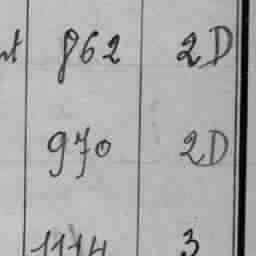 862 2D
970 2D
1114 3